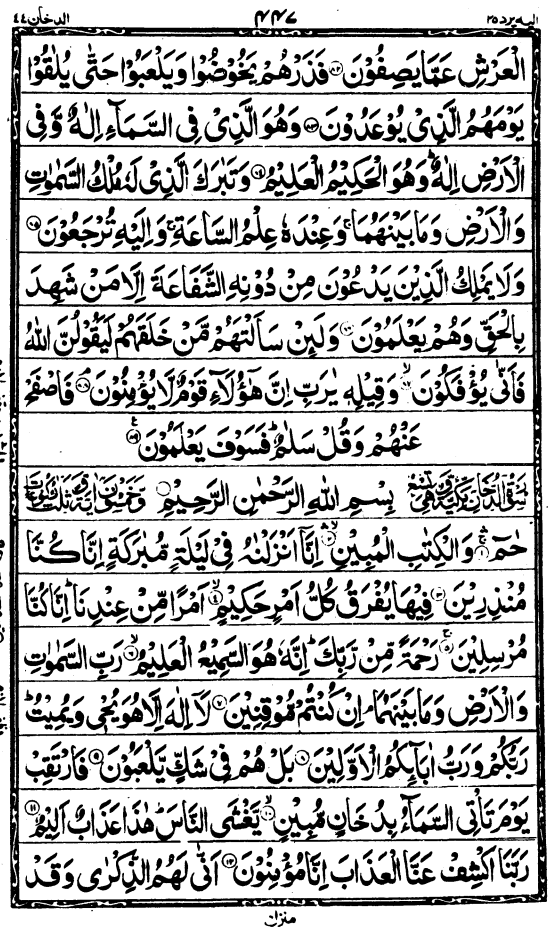 الیه یرد ۲۵ ۴۴۷ الدخان ۴۴
الْعَرْشِ عَمَّا يَصِفُوْنَ ﴿۸۲﴾ فَذَرْهُمْ يَخُوْضُوْا وَيَلْعَبُوْا حَتّٰى يُلٰقُوْا
يَوْمَهُمُ الَّذِيْ يُوْعَدُوْنَ ﴿۸۳﴾ وَهُوَ الَّذِيْ فِي السَّمَآءِ اِلٰهٌ وَّفِي
الْاَرْضِ اِلٰهٌ ؕ وَهُوَ الْحَكِيْمُ الْعَلِيْمُ ﴿۸۴﴾ وَتَبٰرَكَ الَّذِيْ لَهٗ مُلْكُ السَّمٰوٰتِ
وَالْاَرْضِ وَمَا بَيْنَهُمَا ۚ وَعِنْدَهٗ عِلْمُ السَّاعَةِ ۚ وَاِلَيْهِ تُرْجَعُوْنَ ﴿۸۵﴾
وَلَا يَمْلِكُ الَّذِيْنَ يَدْعُوْنَ مِنْ دُوْنِهِ الشَّفَاعَةَ اِلَّا مَنْ شَهِدَ
بِالْحَقِّ وَهُمْ يَعْلَمُوْنَ ﴿۸۶﴾ وَلَئِنْ سَاَلْتَهُمْ مَّنْ خَلَقَهُمْ لَيَقُوْلُنَّ اللّٰهُ
فَاَنّٰى يُؤْفَكُوْنَ ﴿۸۷﴾ وَقِيْلِهٖ يٰرَبِّ اِنَّ هٰٓؤُلَآءِ قَوْمٌ لَّا يُؤْمِنُوْنَ ﴿۸۸﴾ فَاصْفَحْ
عَنْهُمْ وَقُلْ سَلٰمٌ ؕ فَسَوْفَ يَعْلَمُوْنَ ﴿۸۹﴾
سورة الدخان مكية وهي تسع بِسْمِ اللّٰهِ الرَّحْمٰنِ الرَّحِيْمِ وخمسون اية وثلث ركوعات
حٰمٓ ﴿۱﴾ وَالْكِتٰبِ الْمُبِيْنِ ﴿۲﴾ اِنَّآ اَنْزَلْنٰهُ فِيْ لَيْلَةٍ مُّبٰرَكَةٍ اِنَّا كُنَّا
مُنْذِرِيْنَ ﴿۳﴾ فِيْهَا يُفْرَقُ كُلُّ اَمْرٍ حَكِيْمٍ ﴿۴﴾ اَمْرًا مِّنْ عِنْدِنَا ؕ اِنَّا كُنَّا
مُرْسِلِيْنَ ﴿۵﴾ رَحْمَةً مِّنْ رَّبِّكَ ؕ اِنَّهٗ هُوَ السَّمِيْعُ الْعَلِيْمُ ﴿۶﴾ رَبِّ السَّمٰوٰتِ
وَالْاَرْضِ وَمَا بَيْنَهُمَا ۘ اِنْ كُنْتُمْ مُّوْقِنِيْنَ ﴿۷﴾ لَآ اِلٰهَ اِلَّا هُوَ يُحْيٖ وَيُمِيْتُ ؕ
رَبُّكُمْ وَرَبُّ اٰبَآئِكُمُ الْاَوَّلِيْنَ ﴿۸﴾ بَلْ هُمْ فِيْ شَكٍّ يَّلْعَبُوْنَ ﴿۹﴾ فَارْتَقِبْ
يَوْمَ تَاْتِي السَّمَآءُ بِدُخَانٍ مُّبِيْنٍ ﴿۱۰﴾ يَّغْشَى النَّاسَ ؕ هٰذَا عَذَابٌ اَلِيْمٌ ﴿۱۱﴾
رَبَّنَا اكْشِفْ عَنَّا الْعَذَابَ اِنَّا مُؤْمِنُوْنَ ﴿۱۲﴾ اَنّٰى لَهُمُ الذِّكْرٰى وَقَدْ
منزل